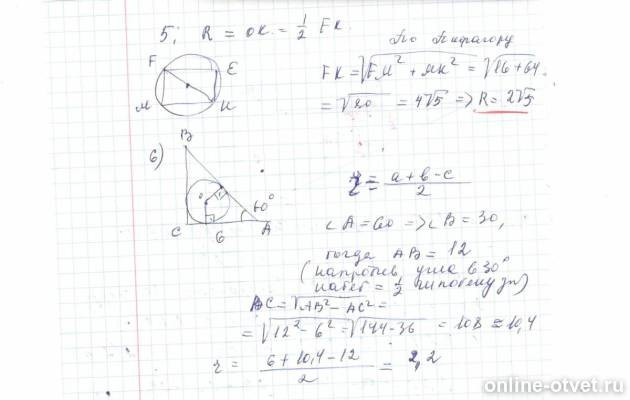 5; R = OK = 1/2 FK.
По Пифагору
F E
M K
FK = √FM² + MK² = √16+64
= √80 = 4√5 => R = 2√5
6)
B
60°
C 6 A
r = a+b-c / 2
∠A = 60 => ∠B = 30,
тогда AB = 12
(напротив угла 6 30°
катет = 1/2 гипотенузы)
BC = √AB² - AC² =
= √12² - 6² = √144-36 = 108 ≈ 10,4
r = 6+10,4-12 / 2 = 2,2
online-otvet.ru